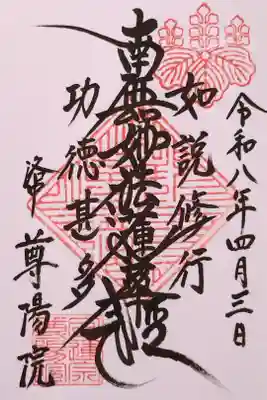 令和八年四月三日
如説修行
南無妙法蓮華経
功徳甚多
尊陽院